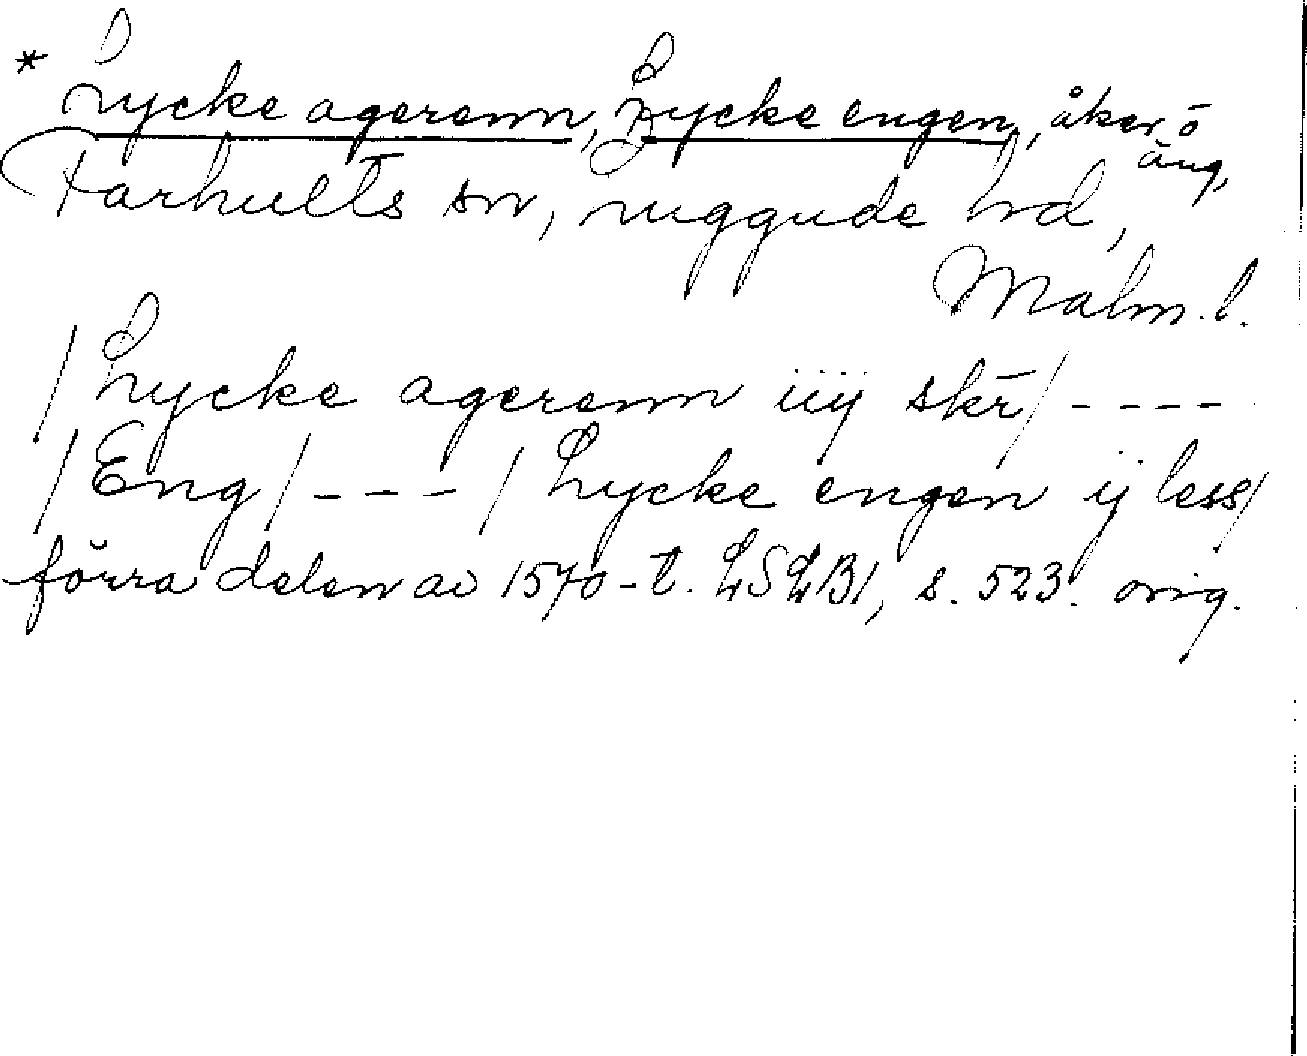 * Lycke agerenn, Lycke engen, åker o
äng,
Farhults sn, Luggude hd,
Malm. l.
/Lycke agerenn iiij skr̄/----
/Eng/---/Lycke engen ij less/
förra delen av 1570-t. LSLB1, s. 523. orig.